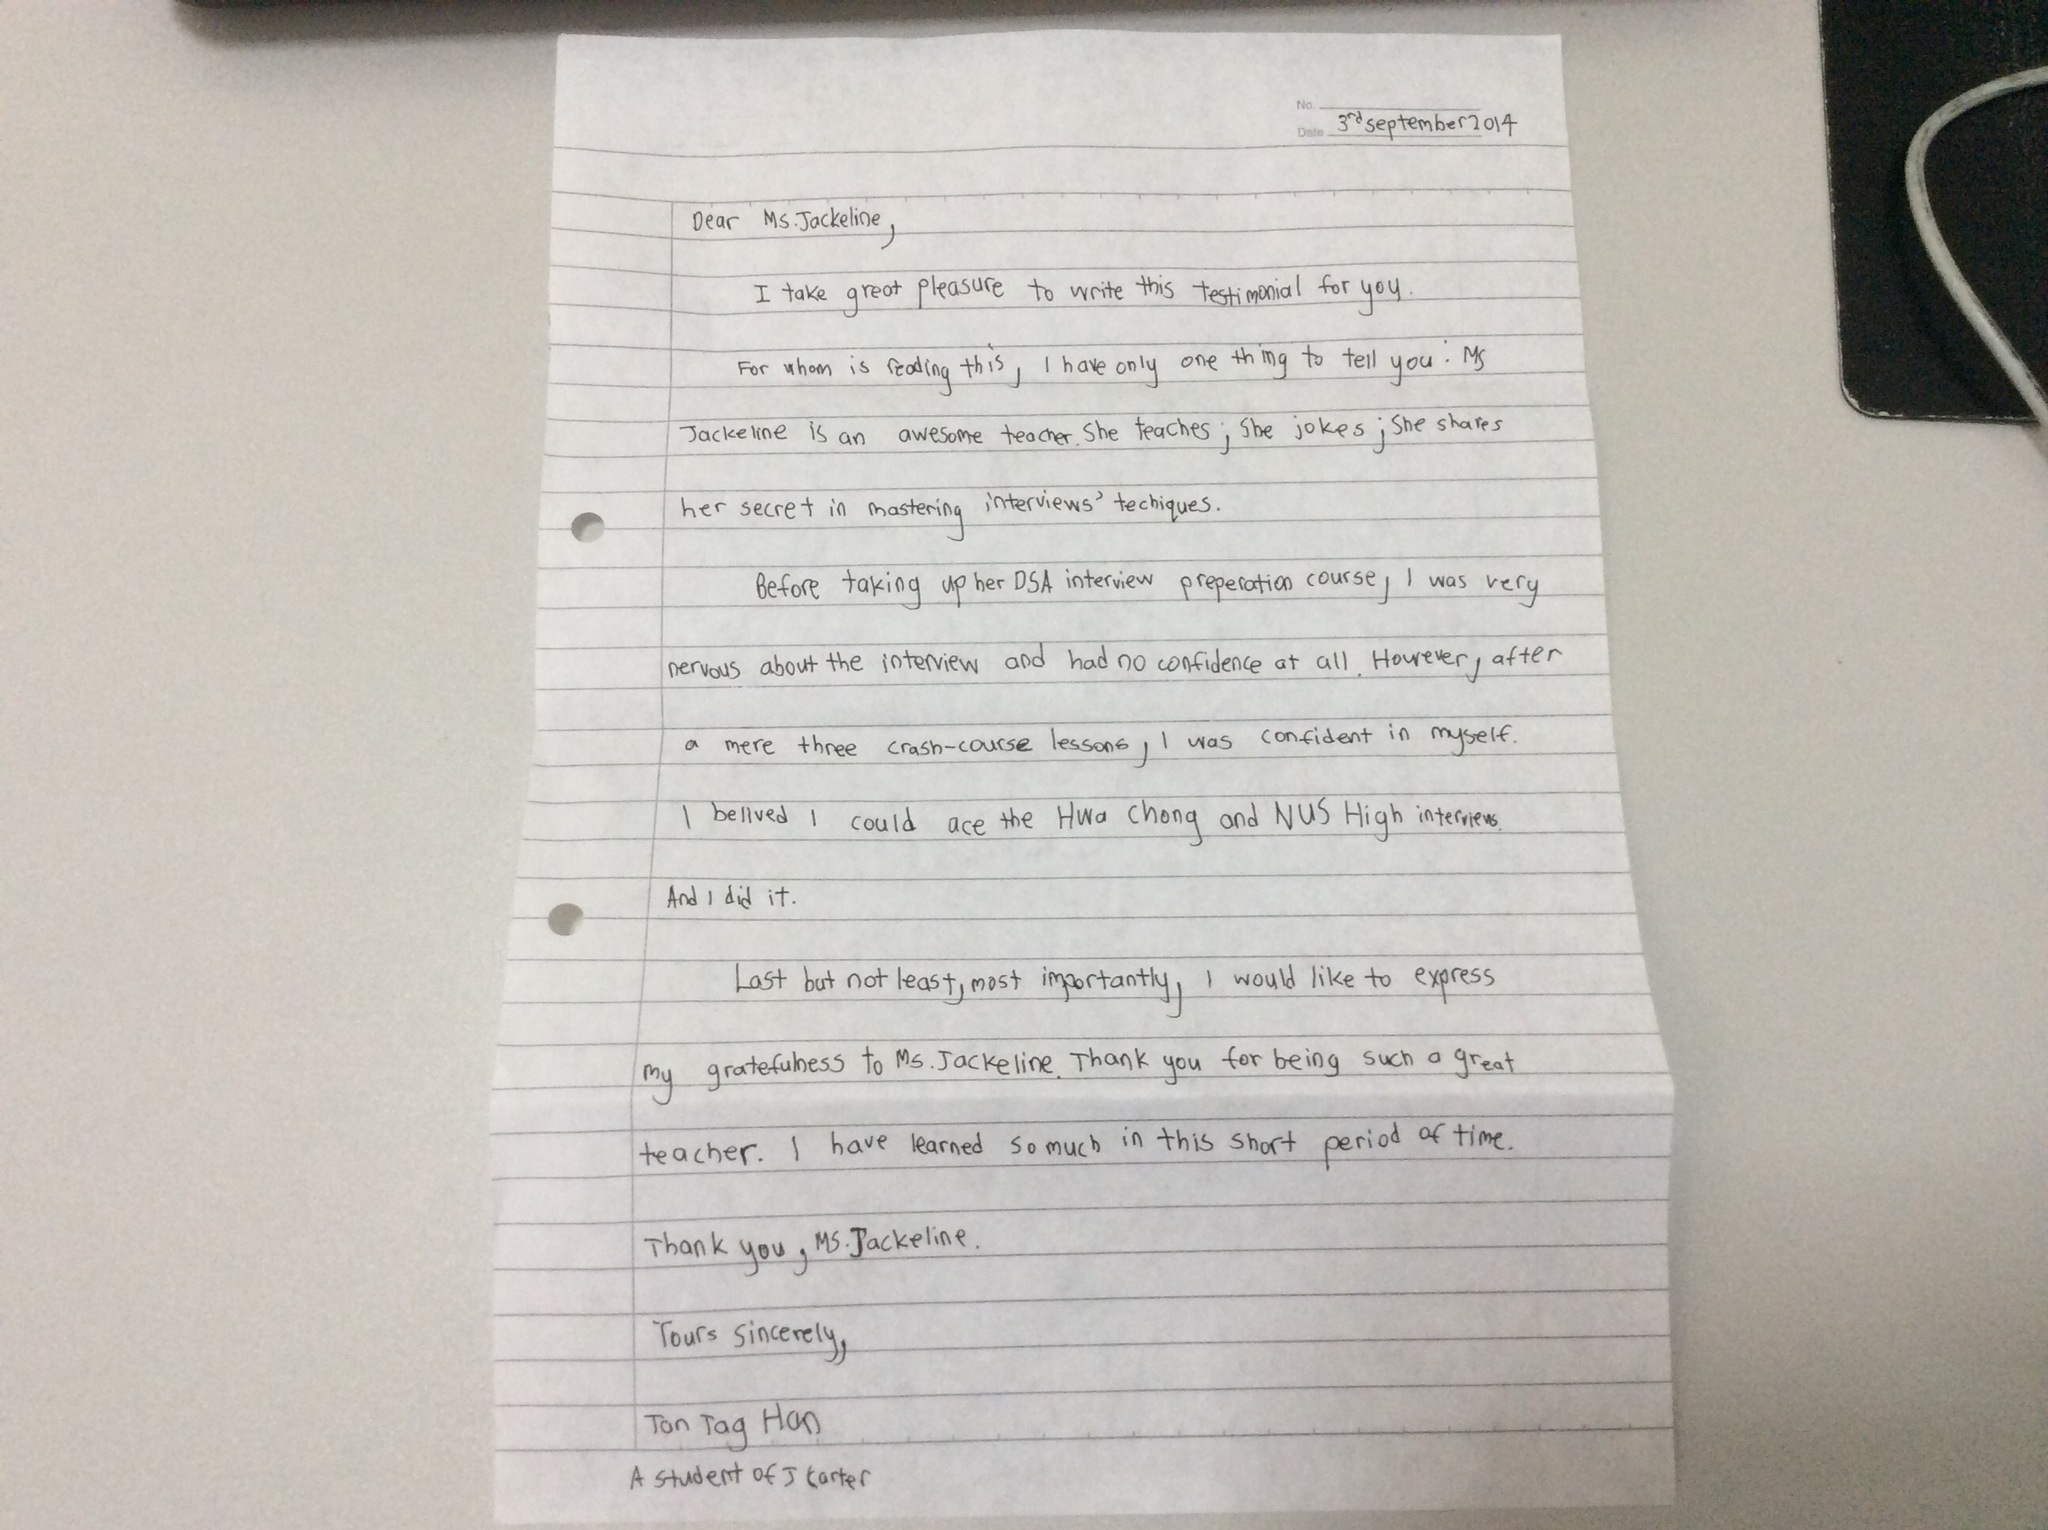 No.
Date 3rd september 2014
Dear Ms. Jackeline,
I take great pleasure to write this testimonial for you.
For whom is reading this, I have only one thing to tell you: Ms
Jackeline is an awesome teacher. She teaches; She jokes; She shares
her secret in mastering interviews' techiques.
Before taking up her DSA interview preperation course, I was very
nervous about the interview and had no confidence at all. However, after
a mere three crash-course lessons, I was confident in myself.
I belived I could ace the Hwa Chong and NUS High interviews.
And I did it.
Last but not least, most importantly, I would like to express
my gratefulness to Ms. Jackeline. Thank you for being such a great
teacher. I have learned so much in this short period of time.
Thank you, MS. Jackeline.
Yours sincerely,
Tan Tag Han
A student of J Carter